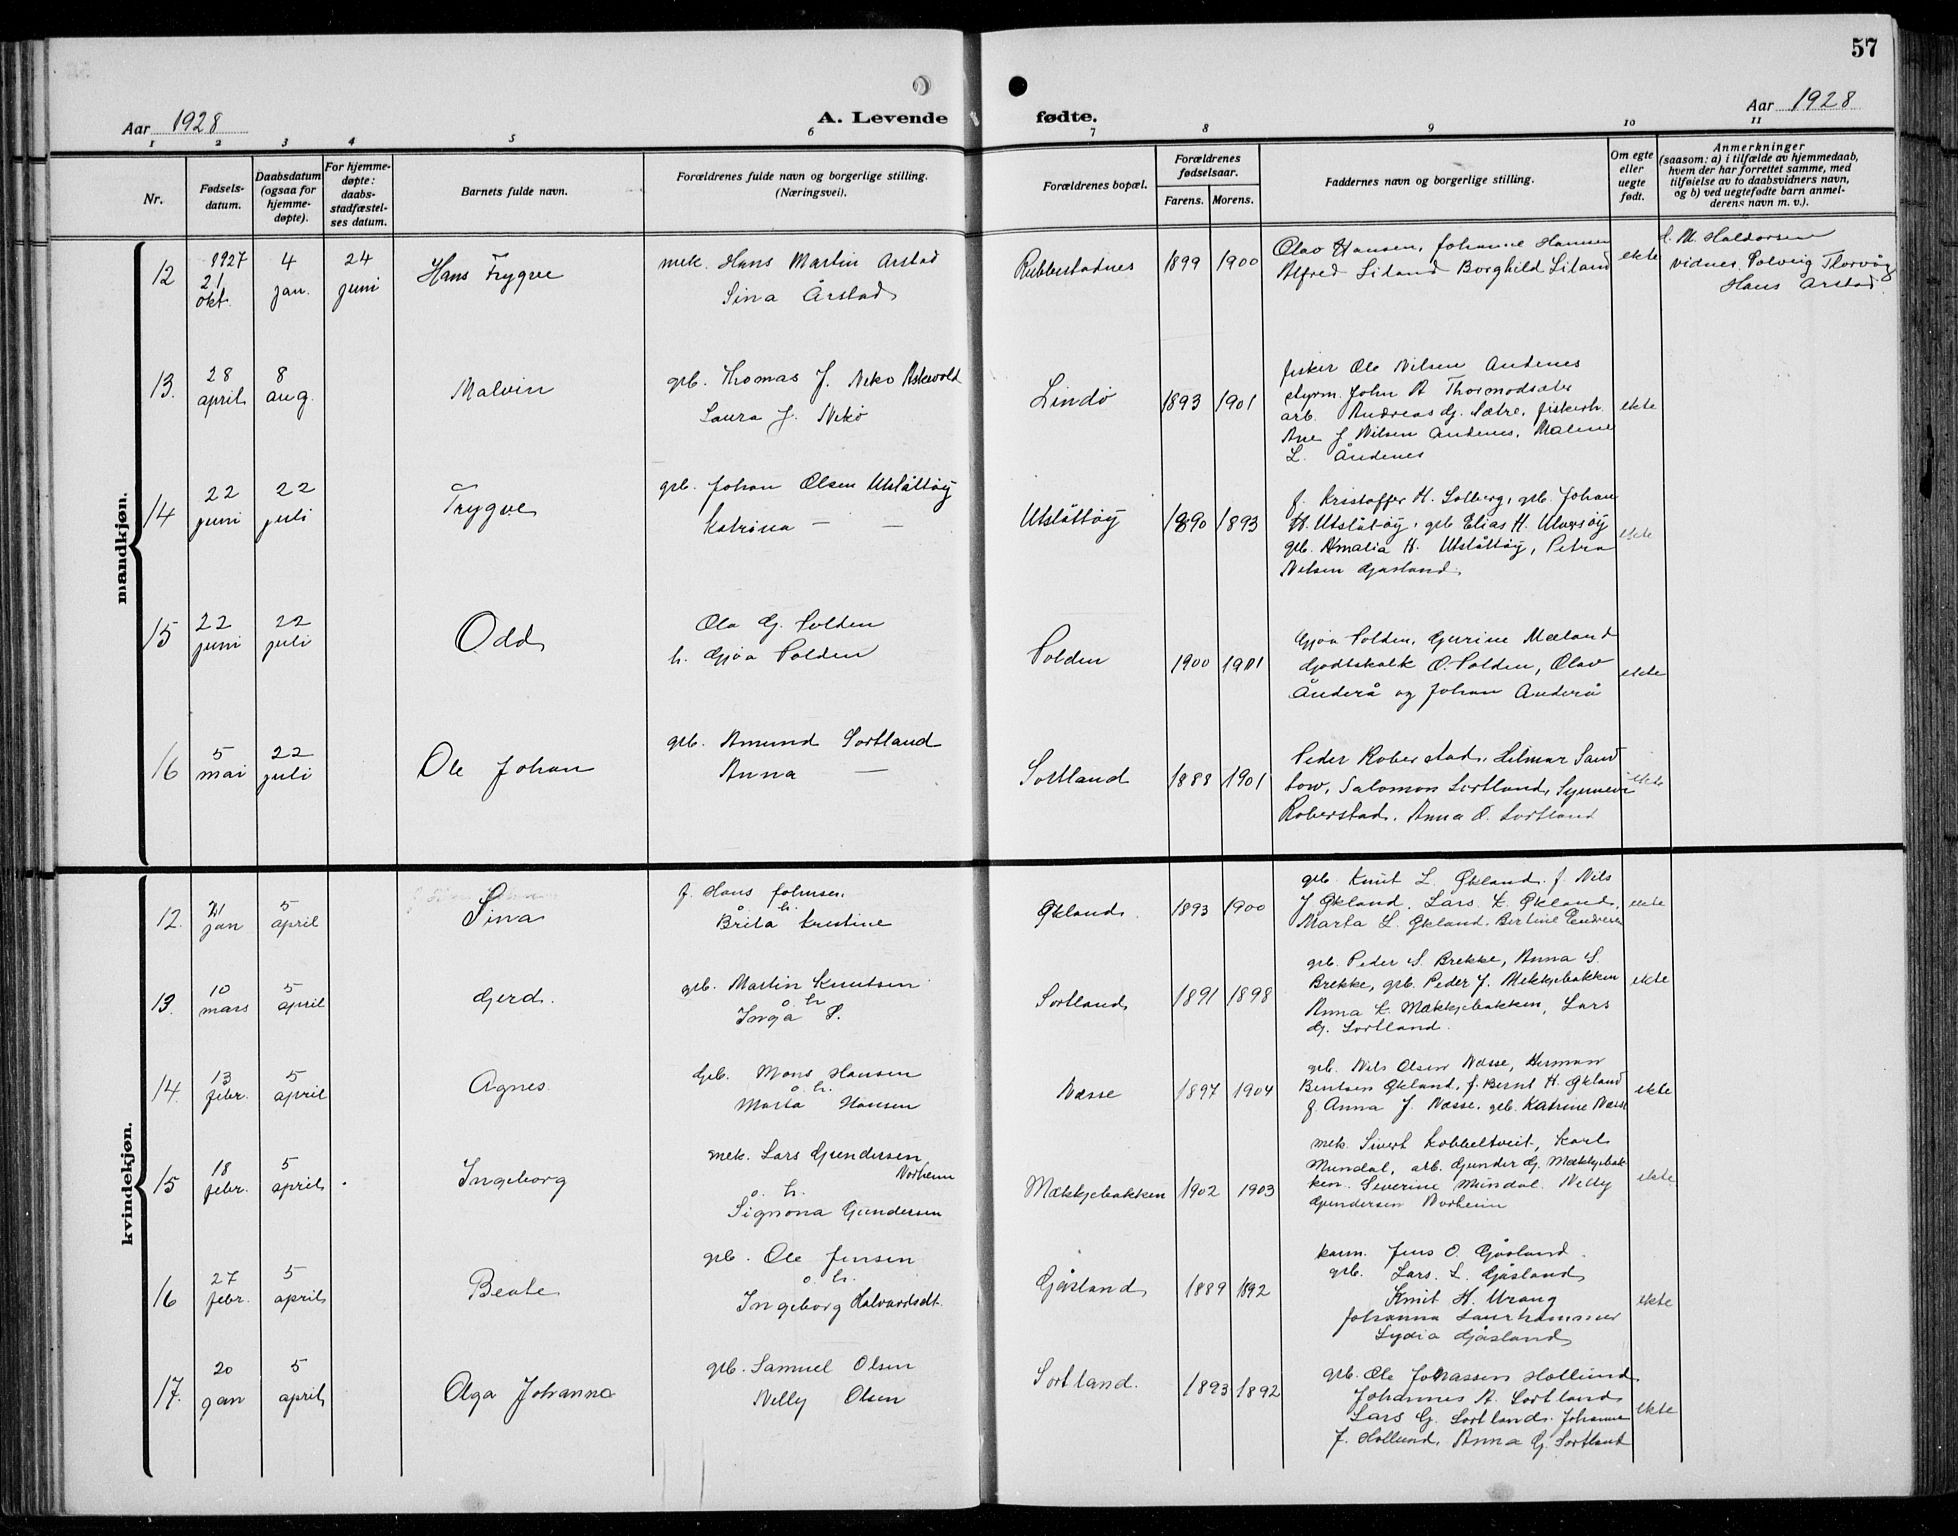 57
Aar 1928
A. Levende
fødte.
Aar 1928
1 2 3 4 5 6 7 8 9 10 11
Nr.
Fødsels-
datum.
Daabsdatum
(ogsaa for
hjemme-
døpte).
For hjemme-
døpte:
daabs-
stadfæstel-
ses datum.
Barnets fulde navn.
Forældrenes fulde navn og borgerlige stilling.
(Næringsvei).
Forældrenes bopæl.
Forældrenes
fødselsaar.
Farens. Morens.
Faddernes navn og borgerlige stilling.
Om egte
eller
uegte
født.
Anmerkninger
(saasom: a) i tilfælde av hjemmedaab,
hvem der har forrettet samme, med
tilføielse av to daabsvidners navn,
og b) ved uegtefødte barn anmel-
derens navn m. v.).
mandkjøn.
12
1927
21
okt.
4
jan.
24
juni
Hans Trygve
mek. Hans Martin Årstad
Sina Årstad
Rubbestadnes
1899 1900
Olav Hansen, Johanne Hansen
Alfred Liland Borghild Liland
ekte
M. Haldorsen
vidnes. Solveig
Hans Årstad.
13.
28
april
8
aug.
Malvin
grb. Thomas J. Nekø Askevold
Laura J. Nekø
Lindø
1893 1901
fisker Ole Nilsen Andenes
styrm. John A Thormodsæter
arb. Andreas G. Sætre, fiskerh.
Ane J Nilsen Andenes, Malene
L. Åndenes
ekte
14
22
juni
22
juli
Trygve
grb. Johan Olsen Utslåttøy
Katrina — —
Utslåttøy
1890 1893
f. Kristoffer H. Solberg, grb. Johan
H. Utslåtøy, grb Elias H. Ulversøy
grb. Amalia H. Utslåttøy, Petra
Nilsen Gåsland.
ekte
15
22
juni
22
juli
Odd
Ola G. Solden
h. Gjøa Solden
Solden
1900 1901
Gjøa Solden, Gurine Mæland
Godtskalk O. Solden, Olav
Ånderå og Johan Anderå
ekte
16
5
mai
22
juli
Ole Johan
grb. Amund Sortland
Anna —
Sortland
1888 1901
Peder Roberstad, Hilmar Sand
tow, Salomon Sortland, Synneve
Roberstad, Anna O. Sortland
ekte
kvindekjøn.
12.
21
jan
5
april
Sina
f. Hans Johnsen
o. h.
Brita Kristine
Økland.
1893 1900
grb. Knut L. Økland. f. Nils
J Økland, Lars K. Økland,
Marta L. Økland. Bertine Endresen
ekte
13.
10
mars
5
april
Gerd.
grb. Martin Knutsen
o. h
Inga S.
Sortland
1891 1898
grb. Peder S. Brekke, Anna S.
Brekke, grb. Peder J. Mekkjebakken
Anna K. Mækkjebakken, Lars
G. Sortland.
ekte
14.
13
febr.
5
april
Agnes.
Grb. Mons Hansen
o. h.
Marta Hansen
Næsse
1897 1904
grb. Nils Olsen Næsse, Herman
Bentsen Økland, f. Bernt H. Økland
f. Anna J. Næsse. grb. Katrine Næsse
ekte
15
18
febr.
5
april
Ingeborg
mek. Lars Gundersen
Norheim
o. h.
Signona Gundersen
Mækkjebakken
1902 1903
mek. Sivert Kobbeltveit, Karl
Mundal, arb. Gunder G. Mækkjebak
ken. Severine Mundal. Nelly
Gundersen Norheim
ekte
16
27
febr.
5
april
Beate
grb. Ole Jensen
o. h.
Ingeborg Halvardsdt.
Gåsland
1889 1892
kaım. Jens O. Gåsland.
grb. Lars. L. Gåsland
Knut H. Urang
Johanna Laurhammer
Lydia Gåsland
ekte
17.
20
jan
5
april
Olga Johanna
grb. Samuel Olsen
Nelly Olsen
Sortland.
1893 1892
grb. Ole Johassen Hollund
Johannes A. Sortland
Lars G. Sortland. Johanne
J. Hollund, Anna G. Sortland
ekte